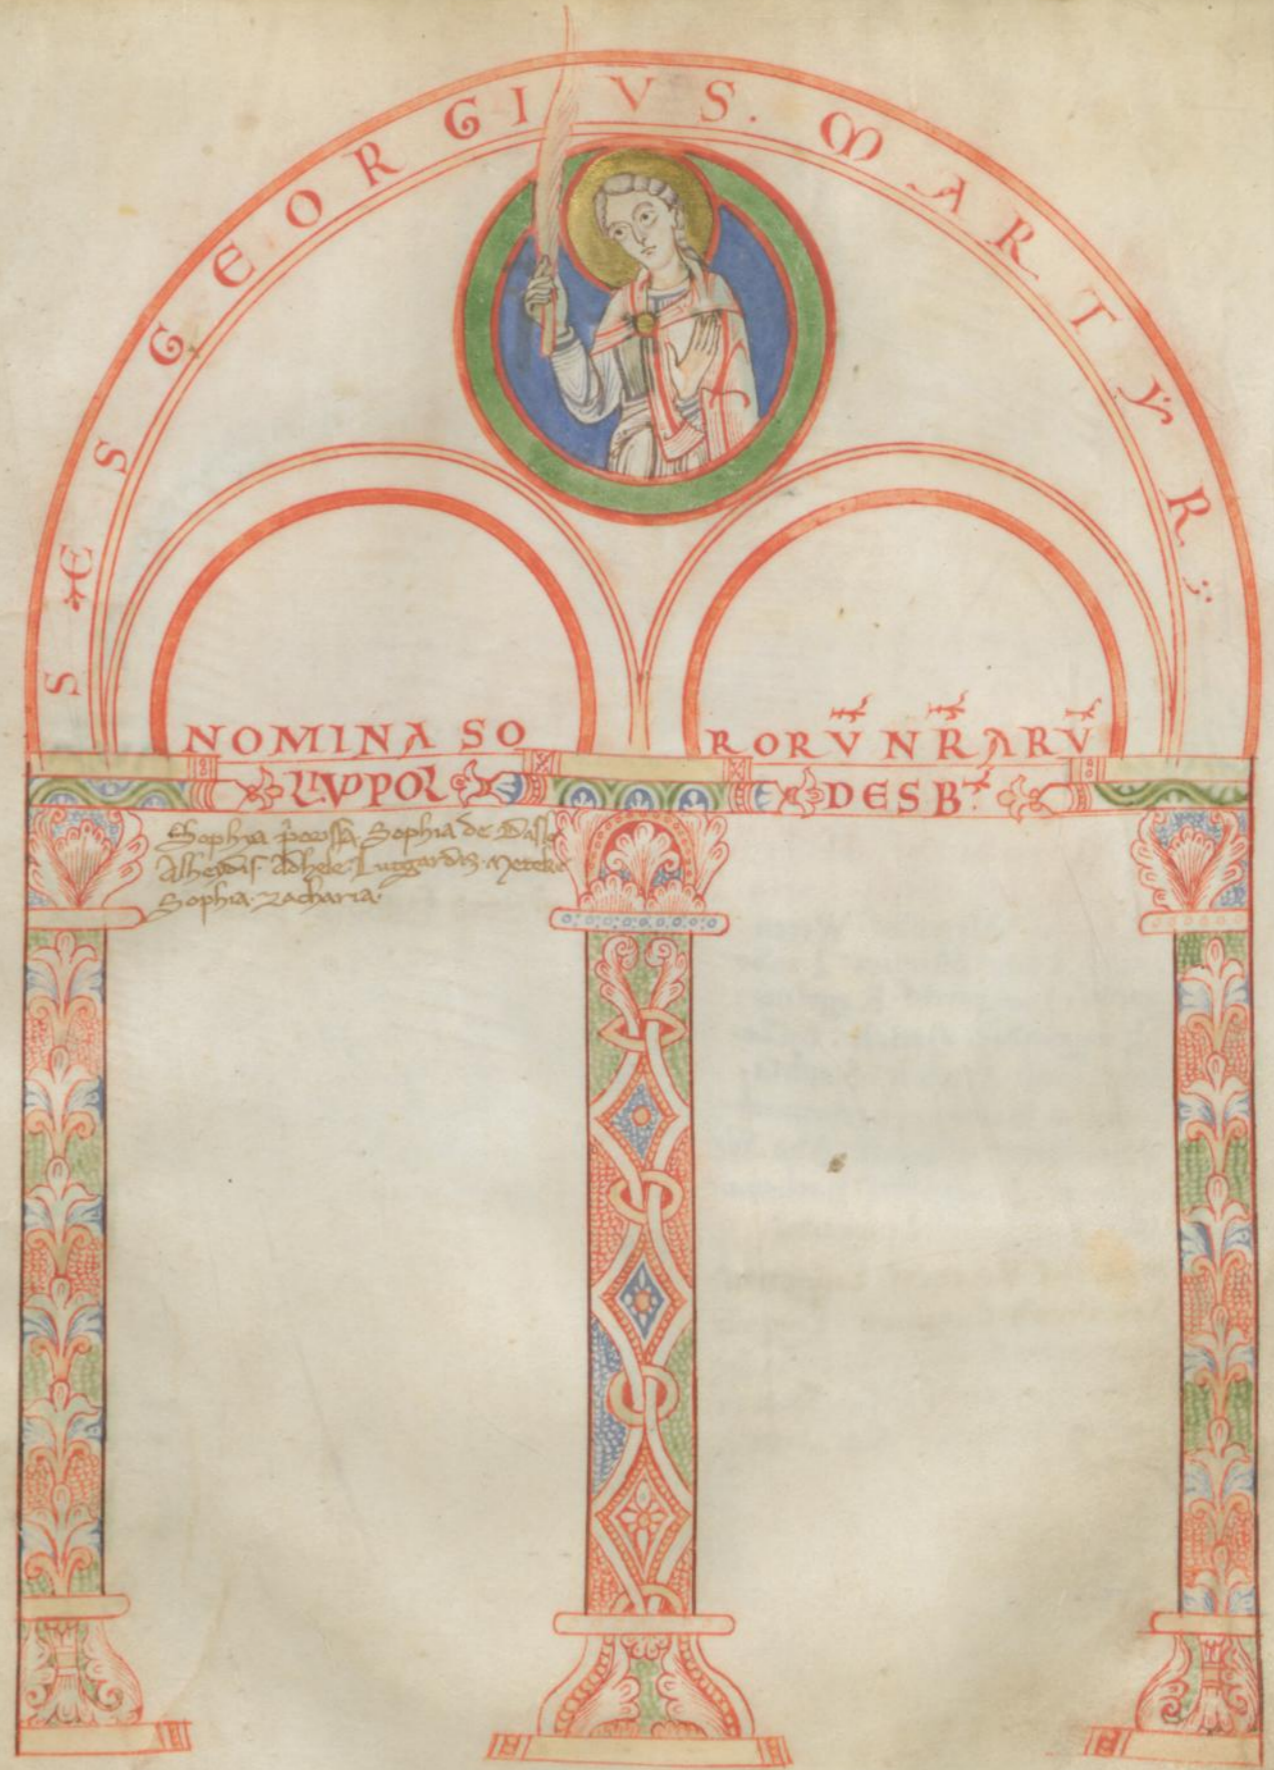 SCS GEORGIVS. MARTYR.
NOMINA SO RORV̄ NR̄ARV̄
LIVPPOL DESB
Sophya p̄orissa. Sophia de Dasle
Alheidis. Adhele. Lutgardis. Meteke
Sophia. Zacharia.